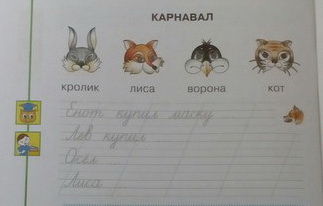 КАРНАВАЛ
кролик лиса ворона кот
Енот купил маску
Лев купил
Осёл
Лиса